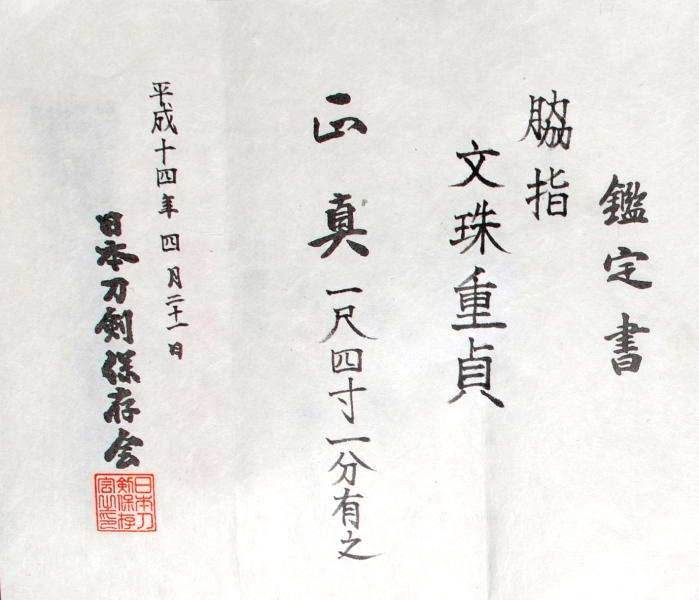 鑑定書
脇指
文珠重貞
正真
一尺四寸一分有之
平成十四年四月二十一日
日本刀剣保存会
日本刀
剣保存
会之印